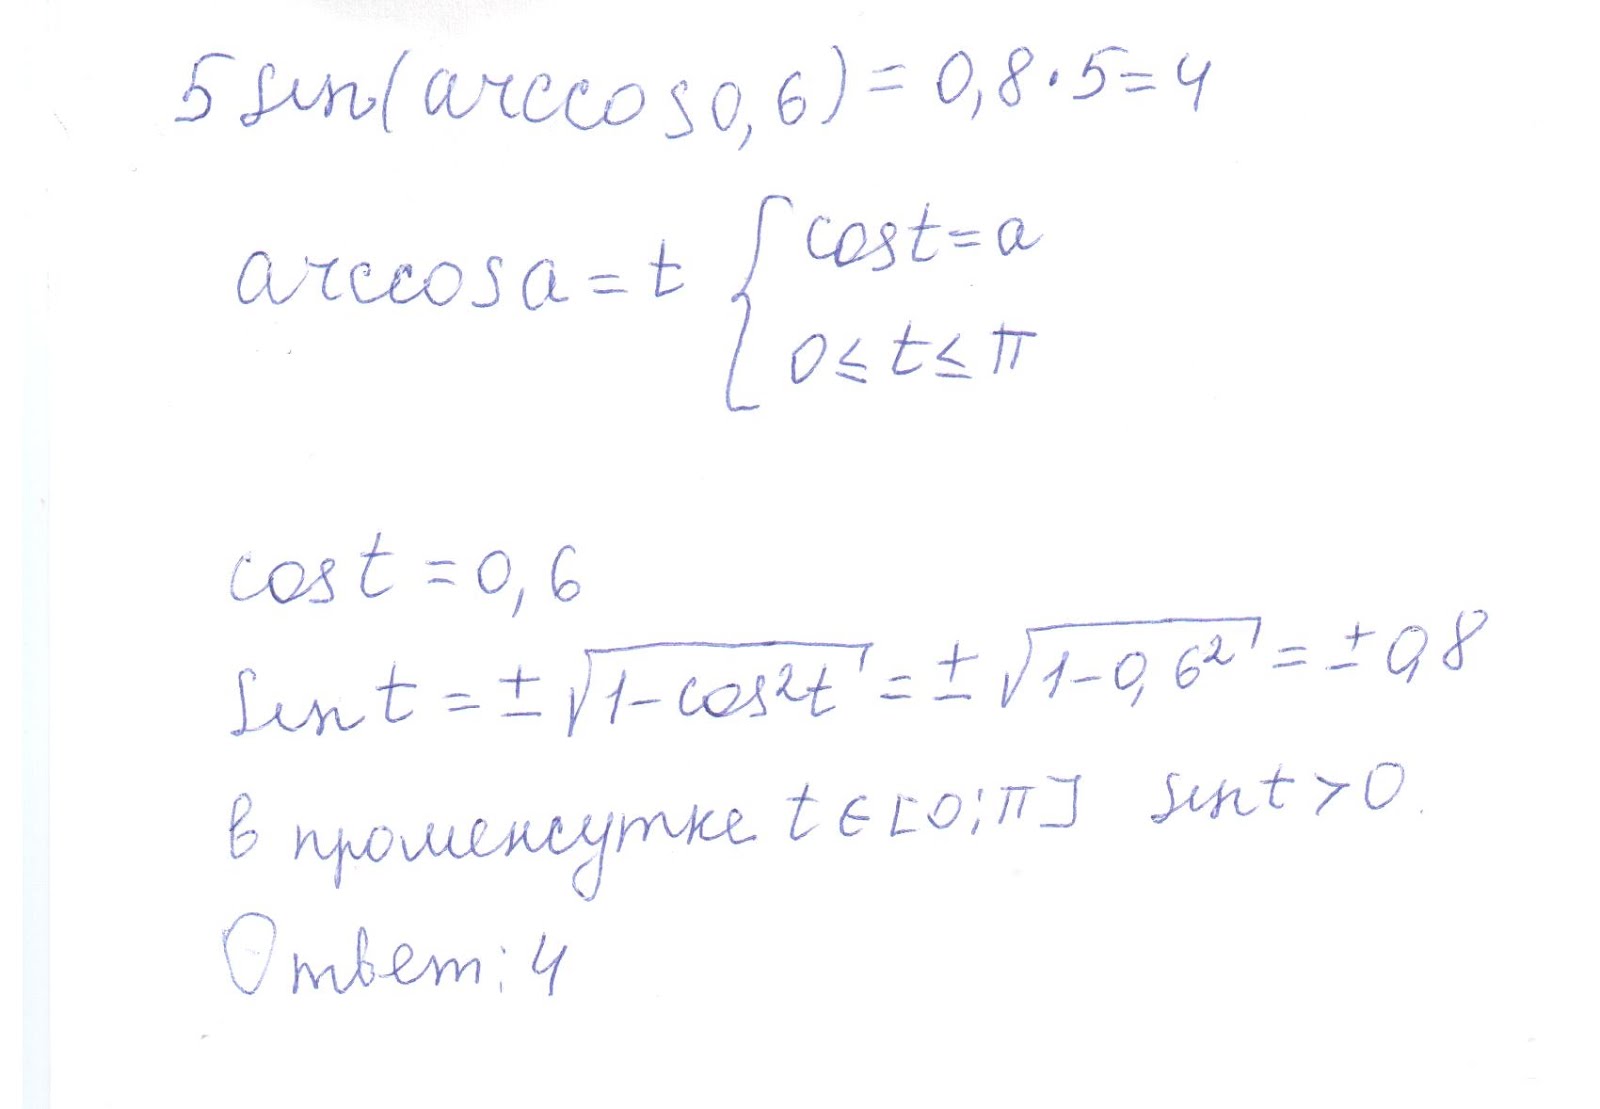 5 sin(arccos 0,6) = 0,8 · 5 = 4
arccos a = t { cos t = a
0 ≤ t ≤ π
cos t = 0,6
sin t = ± √(1 - cos²t) = ± √(1 - 0,6²) = ± 0,8
в промежутке t ∈ [0; π] sin t > 0.
Ответ: 4